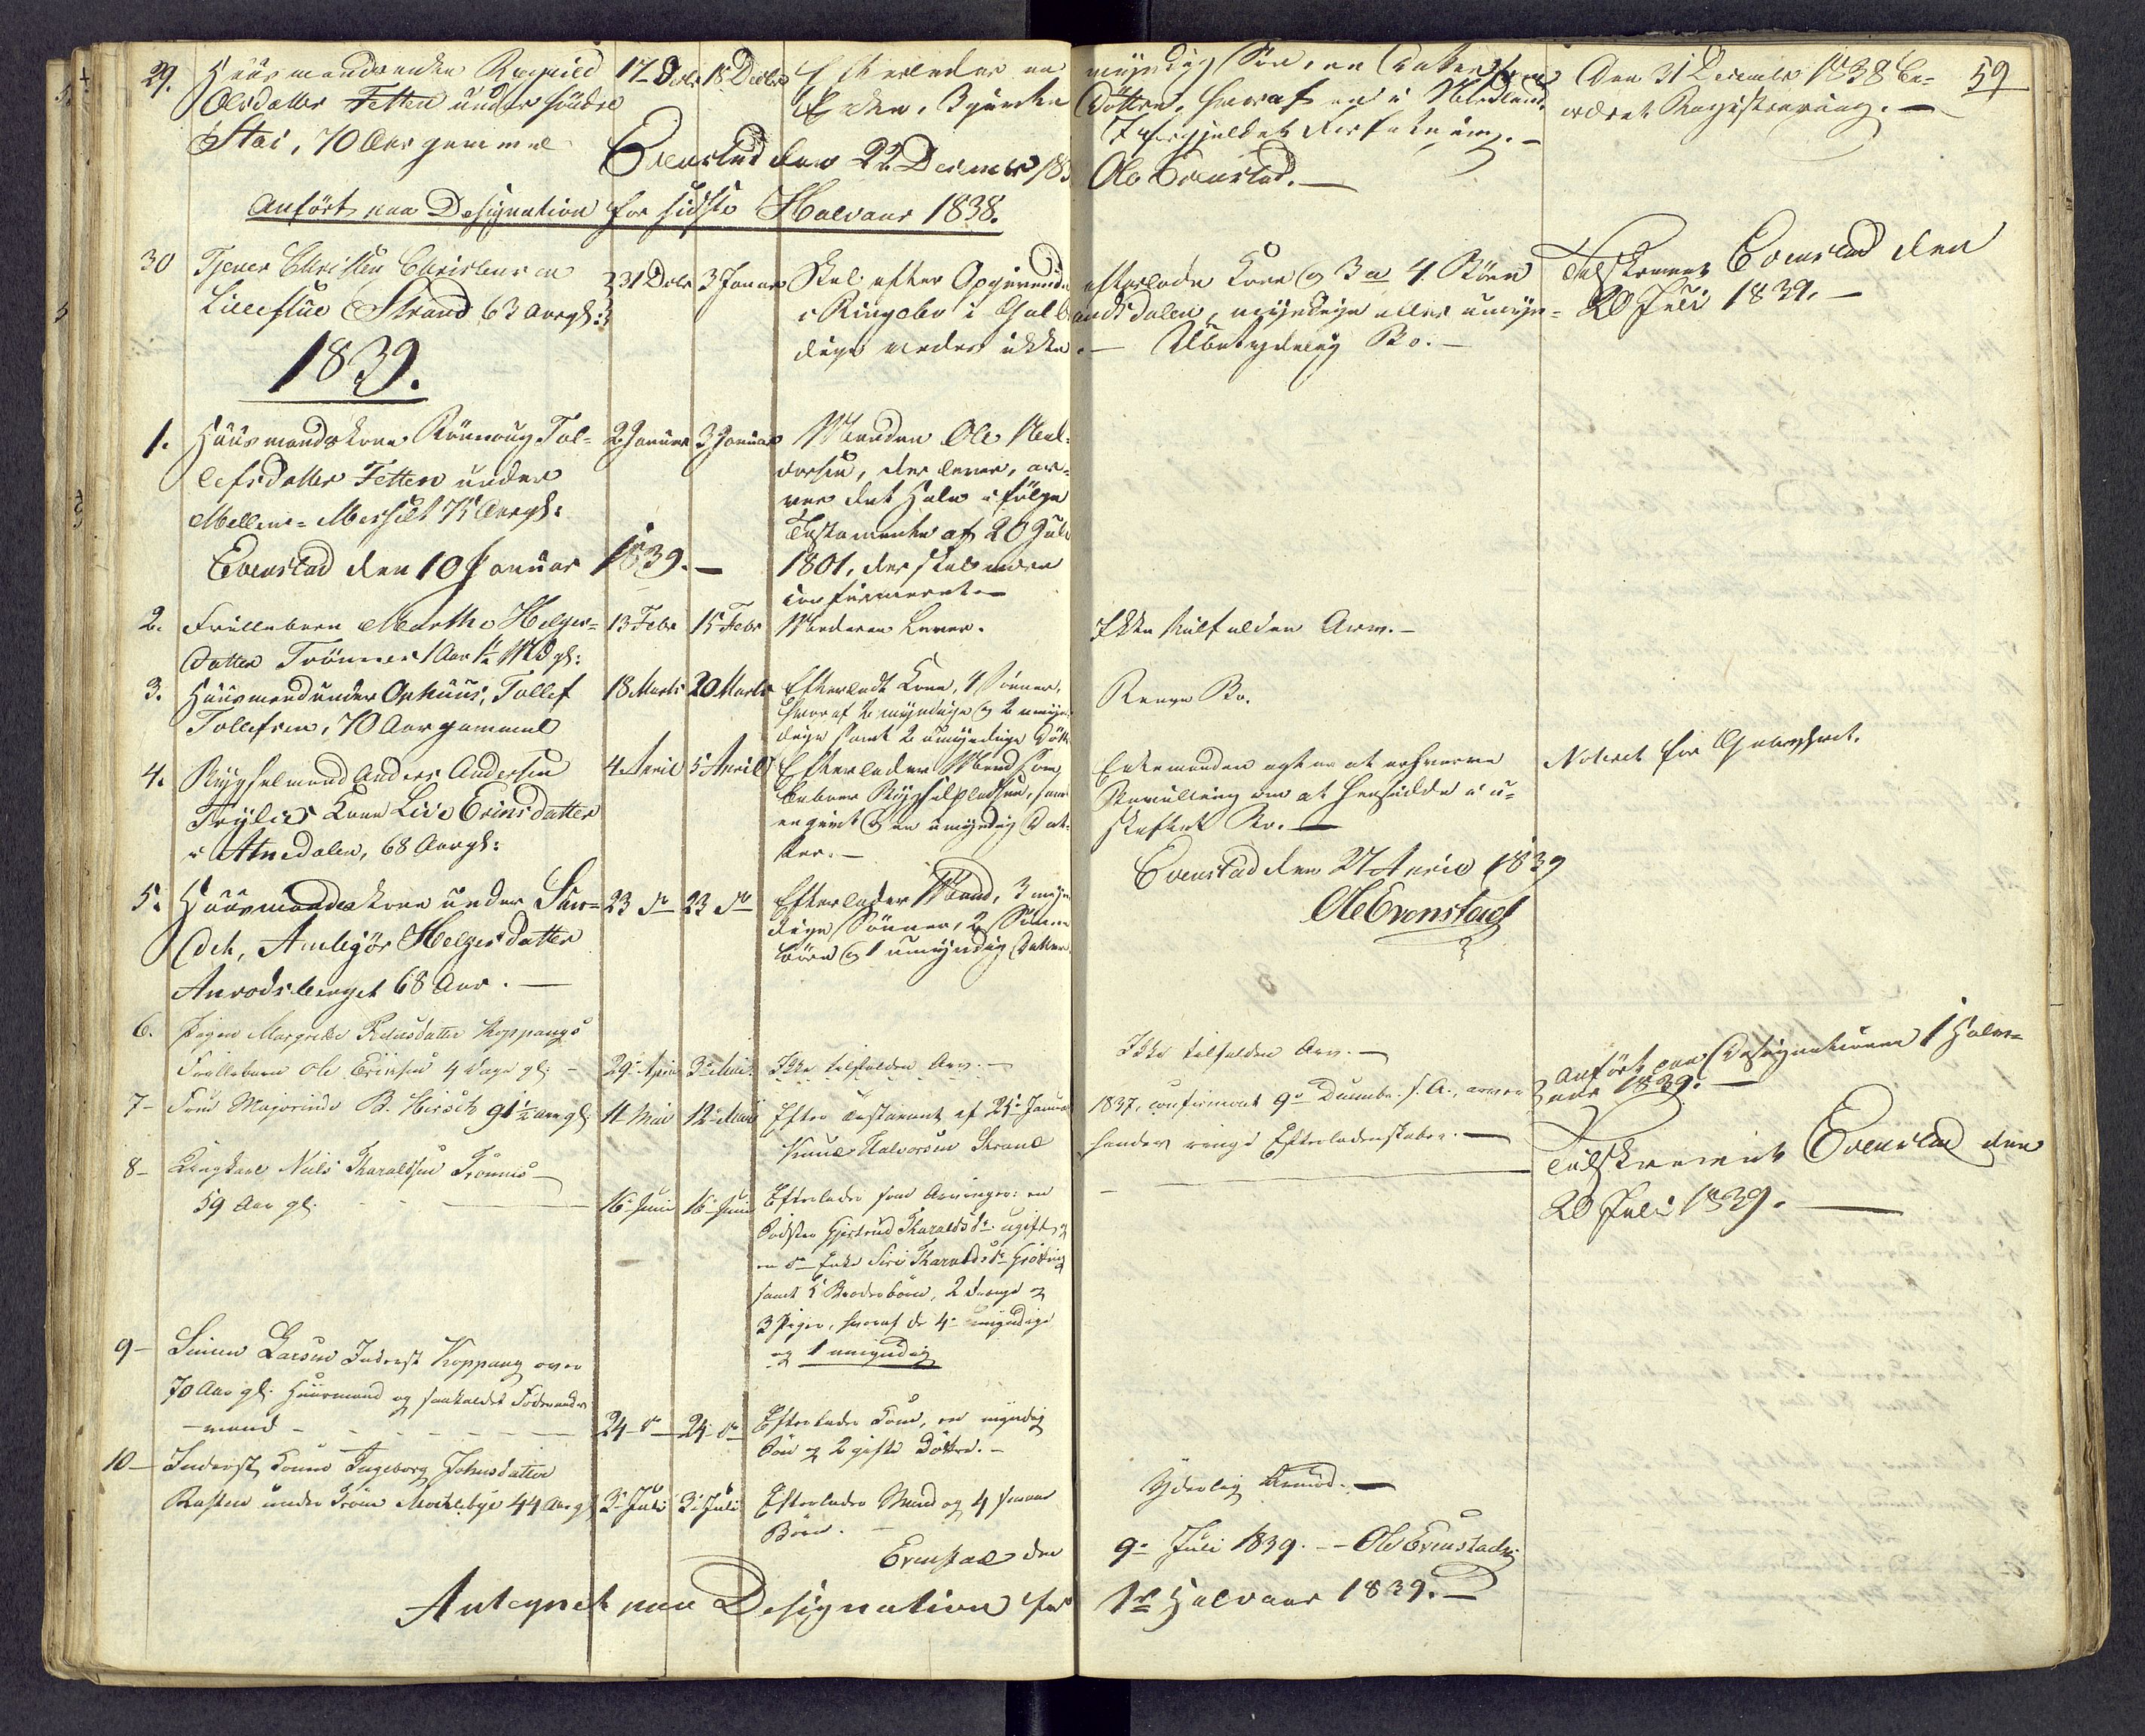 29. Huusmandsenken Ragnild
Olsdatter Fetten under søndre
Stai, 70 Aar gammel
17 Decbr 18 Decbr
Efterlader en
Enken, 3 gifte
myndig Søn, en
Døttre, hvoraf en i Nordland.
Den 31 December 1838 be-
ordret Registrering. —
59
Evenstad den 22 December 183
Ole Evenstad. —
Anført paa Designation for sidste Halvaar 1838.
30 Tjener Christen Christensen
Lilleflue Strand 63 Aar gl:
31 Decbr 3 Januar
Skal efter Opgivende
i Ringebu i Gulb
dige vides ikke
efterlade Kone og 3 a 4 Børn
andsdalen, myndige eller umyn-
. — Ubetydelig Bo. —
Tilskrevet Evenstad den
20 Juli 1839. —
1839.
1. Huusmandskone Rønnaug Tol-
lefsdatter Fetten under
Mellem-Messelt 75 Aar gl:
2 Januar 3 Januar
Manden Ole Hal-
vorsen, der lever, ar-
ver det Hele i følge
Testamente af 20 Juli
1801, der skal være
confirmeret. —
Evenstad den 10 Januar 1839. —
2. Frillebarn Marthe Helges-
datter Trønnes 1 Aar 1½ Md gl:
13 Febr 15 Febr
Moderen Lever.
Ikke tilfalden Arv. —
3. Huusmand under Ophuus, Tollef
Tollefsen, 70 Aar gammel
18 Marts 20 Marts
Efterladt Kone, 4 Sønner,
hvoraf 2 myndige og 2 umyn-
dige samt 2 umyndige Døttre
Ringe Bo.
4. Rygselmand Anders Andersen
Kone Live Erinsdatter
i Atnedalen, 68 Aar gl:
4 April 5 April
Efterlader Mand som
beboer Rygselpladsen, søn
en givt og en umyndig Dat-
ter. —
Enkemanden agter at erhverve
Bevilling om at hensidde i u-
skiftet Bo. —
Noteret for Gebyhret.
Evenstad den 27 April 1839
Ole Evenstad
5. Huusmandskone under Sun-
det, Ambjør Helgesdatter
Anrodsberget 68 Aar. —
23 do 23 do
Efterlader Mand, 3 myn
dige Sønner, 2 Sønne
børn og 1 umyndig Datter.
6. Pigen Margrethe Pedersdatter Koppangs
Frillebarn Ole Erinsen 4 Dage gl: —
29 April 3 Mai
Ikke tilfalden Arv. —
Ikke tilfalden Arv. —
Anført paa Designationen 1 Halv-
aar 1839. —
7 — Frue Majorinde B. Hirsch 91½ Aar gl:
11 Mai 12 Mai
Efter Testament af 25 Januar
Knud Halvorsen Strand
1837, confirmeret 9 Decembr. s. A., arver
hendes ringe Efterladenskaber. —
Tilskrevet Evenstad den
20 Juli 1839. —
8 — Ungkarl Niels Tharaldsen Trønnes —
59 Aar gl:
16 Juni 16 Juni
Efterlader som Arvinger: en
Sødster Gjertrud Tharaldsdr. ugift, og
en do Enke Siri Tharaldsdr.
samt 5 Broderbørn, 2 Drenge og
3 Piger, hvoraf de 4 myndige
og 1 umyndig
9 — Simen Larsen Inderst Koppang over
70 Aar gl: Huusmand og saakaldet Føderaads
-mand —
24 do 24 do
Efterlader Kone, en myndig
Søn og 2 gifte Døttre. —
10 — Inderst Kone Ingeborg Johnsdatter
Rasten under Møklebye 44 Aar gl
3 Juli 3 Juli
Efterlader Mand og 4 smaa
Børn. —
Yderlig Armod. —
Evenstad den
9 Juli 1839. — Ole Evenstad
Antegnet paa Designation for
1ste Halvaar 1839. —